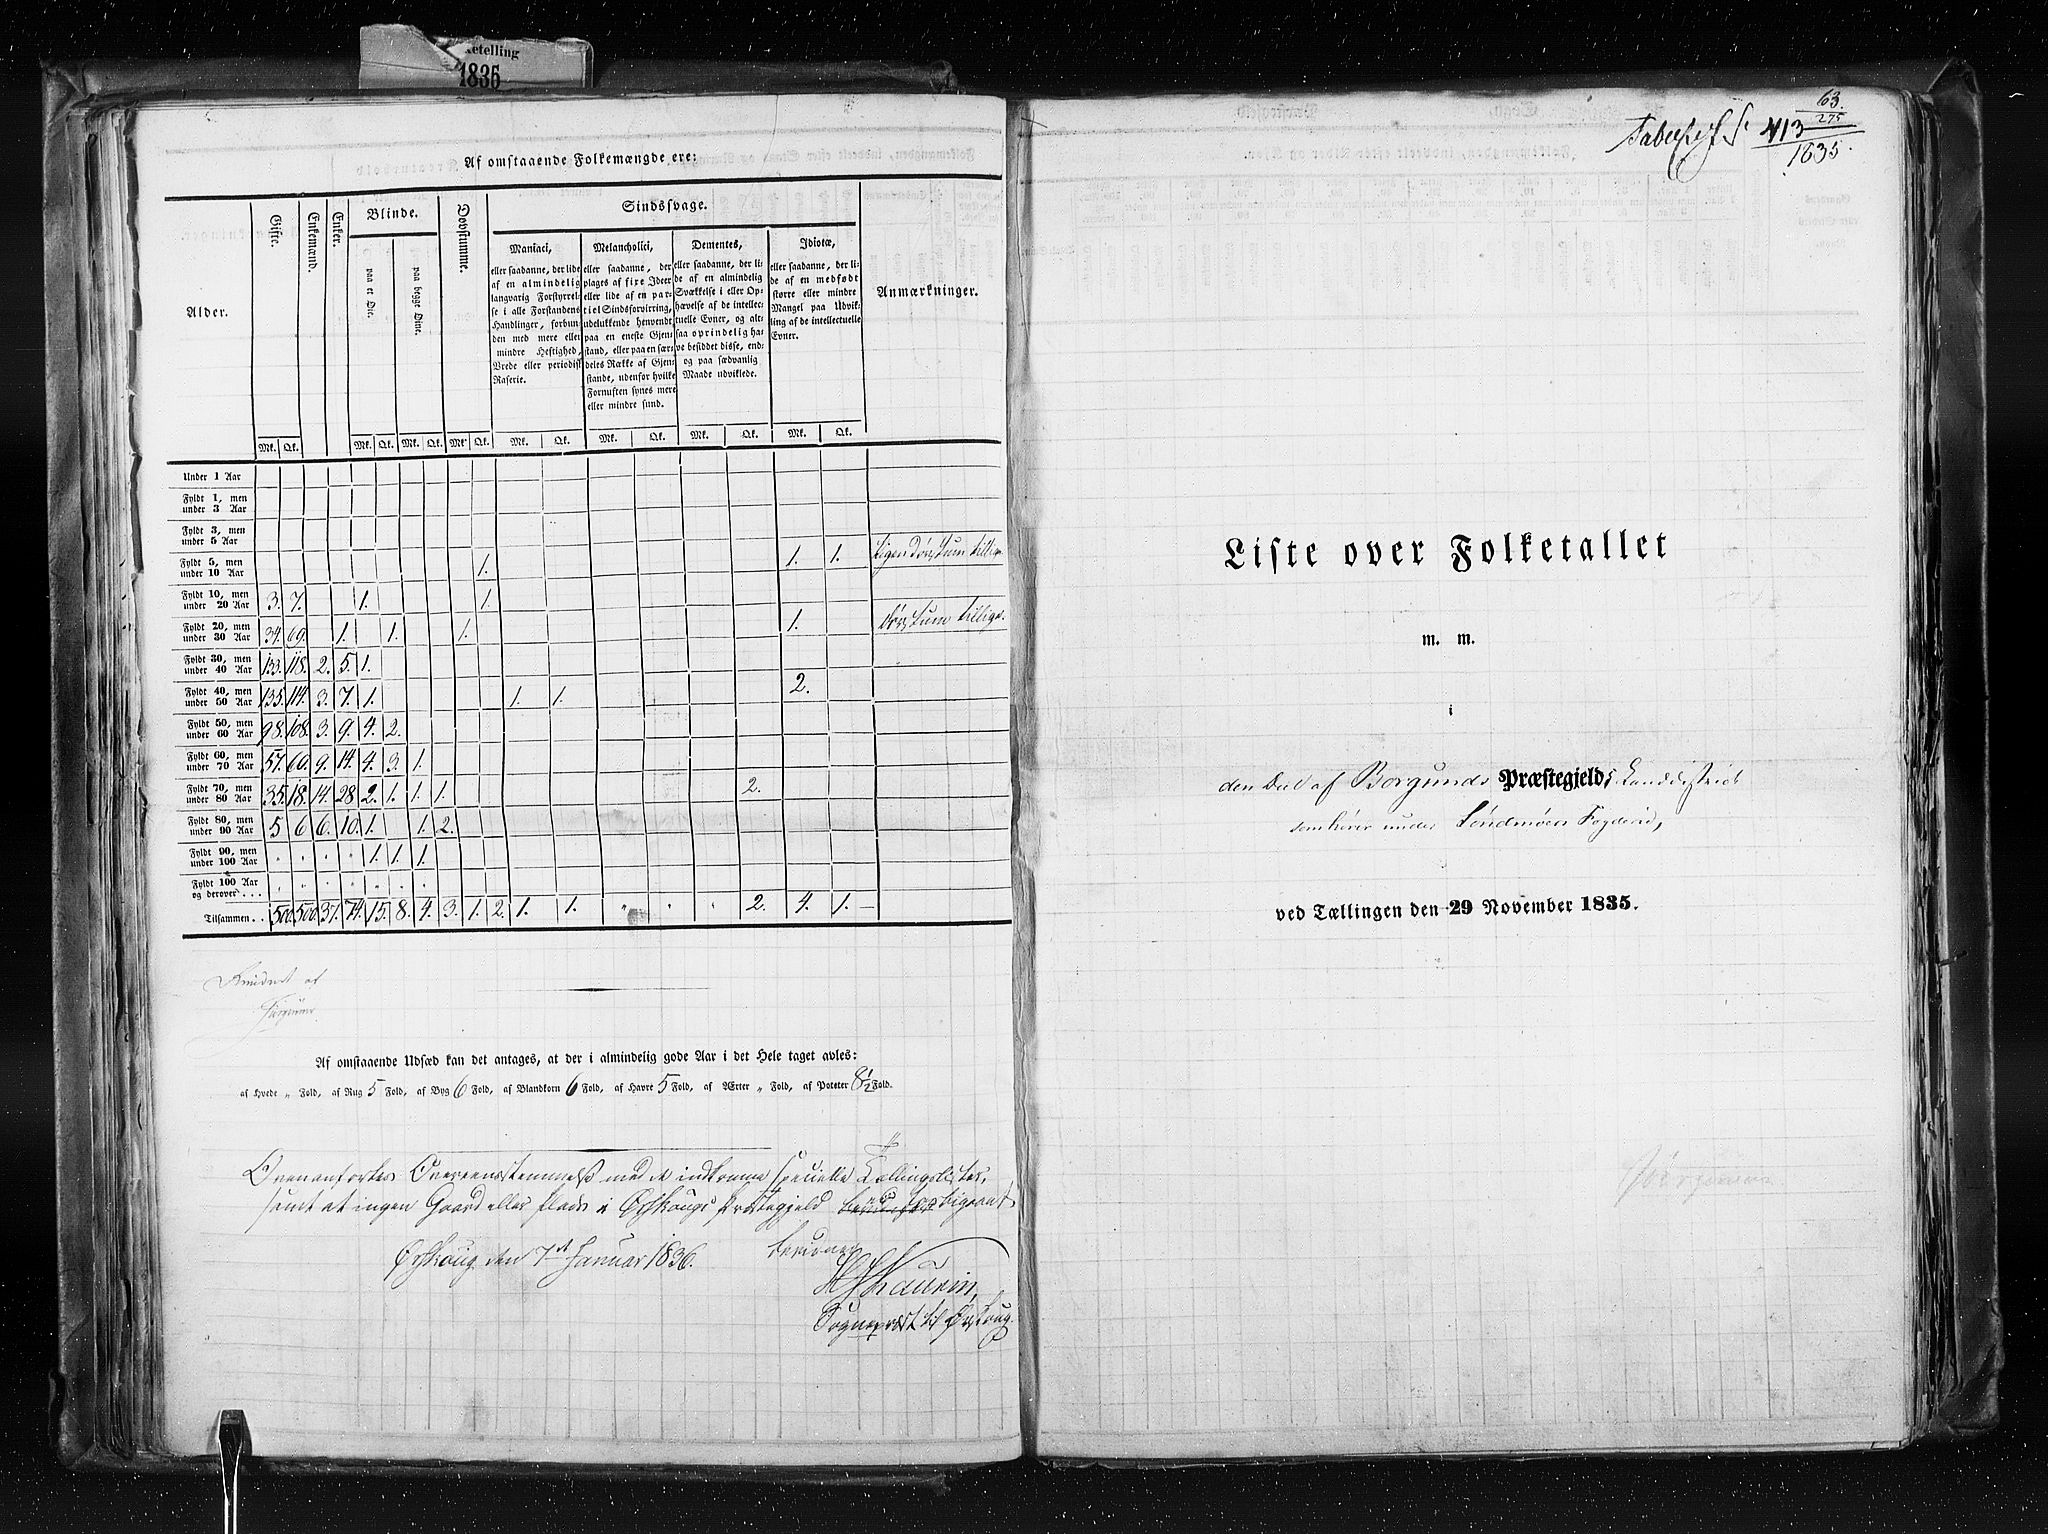 ketelling
1835
Af omstaaende Folkemængde ere:
Alder. Gifte. Enkemænd. Enker. Blinde. Døvstumme. Sindssvage. Anmærkninger.
paa et Øie. paa begge Øine.
Maniaci,
eller saadanne, der lide
af en almindelig
langvarig Forstyrrel-
se i alle Forstandens
Handlinger, forbun-
den med mere eller
mindre Heftighed,
Vrede eller periodisk
Raserie.
Melancholici,
eller saadanne, der
plages af fixe Ideer
eller lide af en par-
tiel Sindsforvirring,
udelukkende henvendt
paa en eneste Gjen-
stand, eller paa en sær-
deles Række af Gjen-
stande, udenfor hvilke
Fornuften synes mere
eller mindre sund.
Dementes,
eller saadanne, der li-
de af en almindelig
Svækkelse i eller Op-
hævelse af de intellec-
tuelle Evner, og alt-
saa oprindelig ha-
ve besiddet disse, end-
og paa sædvanlig
Maade udviklede.
Idiotæ,
eller saadanne, der li-
de af en medfødt
større eller mindre
Mangel paa Udvik-
ling af de intellectuelle
Evner.
Mk. Qk. Mk. Qk. Mk. Qk. Mk. Qk. Mk. Qk. Mk. Qk. Mk. Qk. Mk. Qk.
Under 1 Aar
Fyldt 1, men
under 3 Aar
Fyldt 3, men
under 5 Aar
Fyldt 5, men
under 10 Aar 1. 1. 1. tillige
Fyldt 10, men
under 20 Aar 3. 7. 1. 1.
Fyldt 20, men
under 30 Aar 34. 69. 1. 1. 1. 1. døvstum tillige.
Fyldt 30, men
under 40 Aar 133. 118. 2. 5. 1.
Fyldt 40, men
under 50 Aar 135. 114. 3. 7. 1. 1. 1. 2.
Fyldt 50, men
under 60 Aar 98. 108. 3. 9. 4. 2.
Fyldt 60, men
under 70 Aar 57. 60. 9. 14. 4. 3. 1.
Fyldt 70, men
under 80 Aar 35. 18. 14. 28. 2. 1. 1. 1. 2.
Fyldt 80, men
under 90 Aar 5 6 6. 10. 1. 1. 2.
Fyldt 90, men
under 100 Aar " " " " 1. 1. 1.
Fyldt 100 Aar
og derover . . . " " " " " " "
Tilsammen . . 500 500 37. 74. 15. 8. 4. 3. 1. 2. 1. 1. " " " 2. 4. 1. —
af
Af omstaaende Udsæd kan det antages, at der i almindelig gode Aar i det Hele taget avles:
af Hvede " Fold, af Rug 5 Fold, af Byg 6 Fold, af Blandkorn 6 Fold, af Havre 5 Fold, af Ærter " Fold, af Poteter 8½ Fold.
Ovenanførtes Overeensstemmelse med de indkomne specielle Tællingslister,
samt at ingen Gaard eller Plads i Ørskougs Præstegjeld er forbigaaet
bevidnes
Ørskoug den 7de Januar 1836.
Kaurin,
Sognepræst til Ørskoug.
63.
275
413
1835.
Liste over Folketallet
m. m.
i
den Deel af Borgunds Præstegjelds Landdistrict
som hører under Søndmørs Fogderie,
ved Tællingen den 29 November 1835.